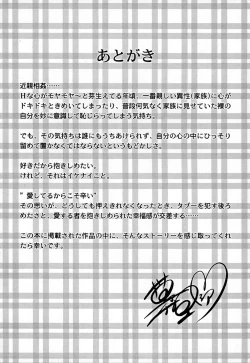 あとがき
近親相姦……
Hな心がモヤモヤ～と芽生えてる年頃、一番親しい異性(家族)に心が
ドキドキときめいてしまったり、普段何気なく家族に見せていた裸の
自分を妙に意識して恥じらってしまう気持ち。
でも、その気持ちは誰にもうちあけられず、自分の心の中にひっそり
留めて置かなくてはならないというもどかしさ。
好きだから抱きしめたい。
けれど、それはイケナイこと。
"愛してるからこそ辛い"
その思いが、どうしても押さえきれなくなったとき、タブーを犯す後ろ
めたさと、愛する者を抱きしめられた幸福感が交差する……
この本に掲載された作品の中に、そんなストーリーを感じ取ってくれ
たら幸いです。